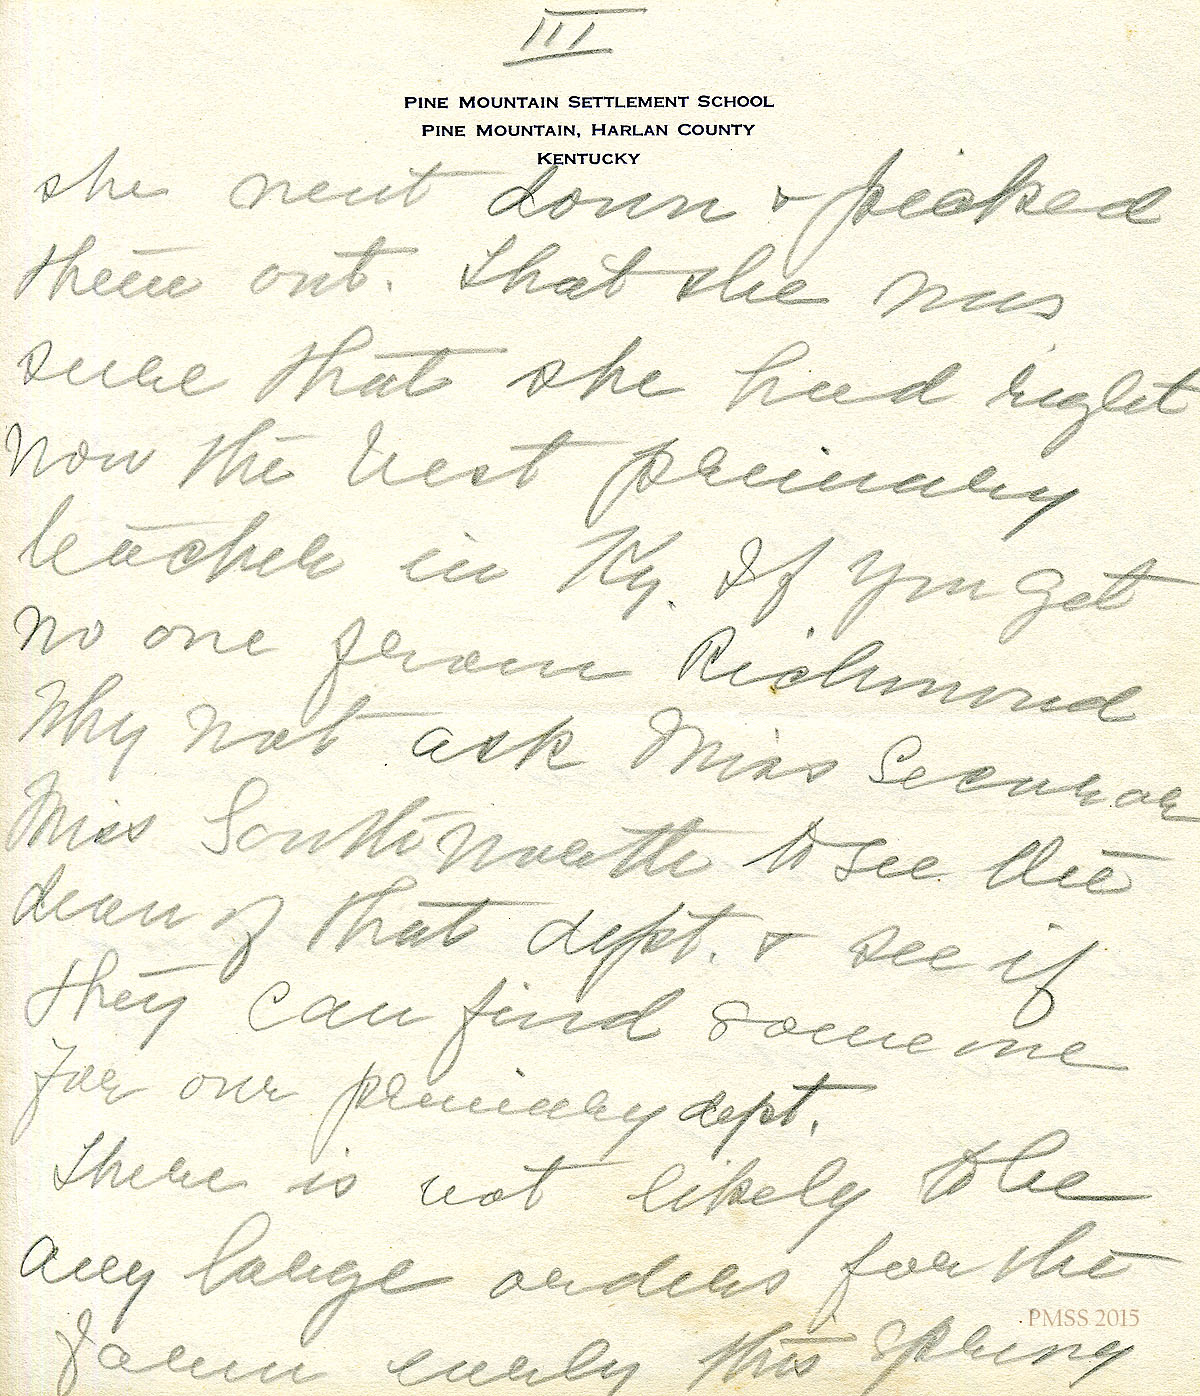 III
PINE MOUNTAIN SETTLEMENT SCHOOL
PINE MOUNTAIN, HARLAN COUNTY
KENTUCKY
she went down & picked
them out. That she was
sure that she had right
now the best primary
teacher in Ky. If you get
no one from Richmond
Why not ask Miss or
Miss Southworth to see the
dean of that dept. & see if
they can find some one
for our primary dept.
There is not likely to be
any large orders for the
farm early this spring
PMSS 2015